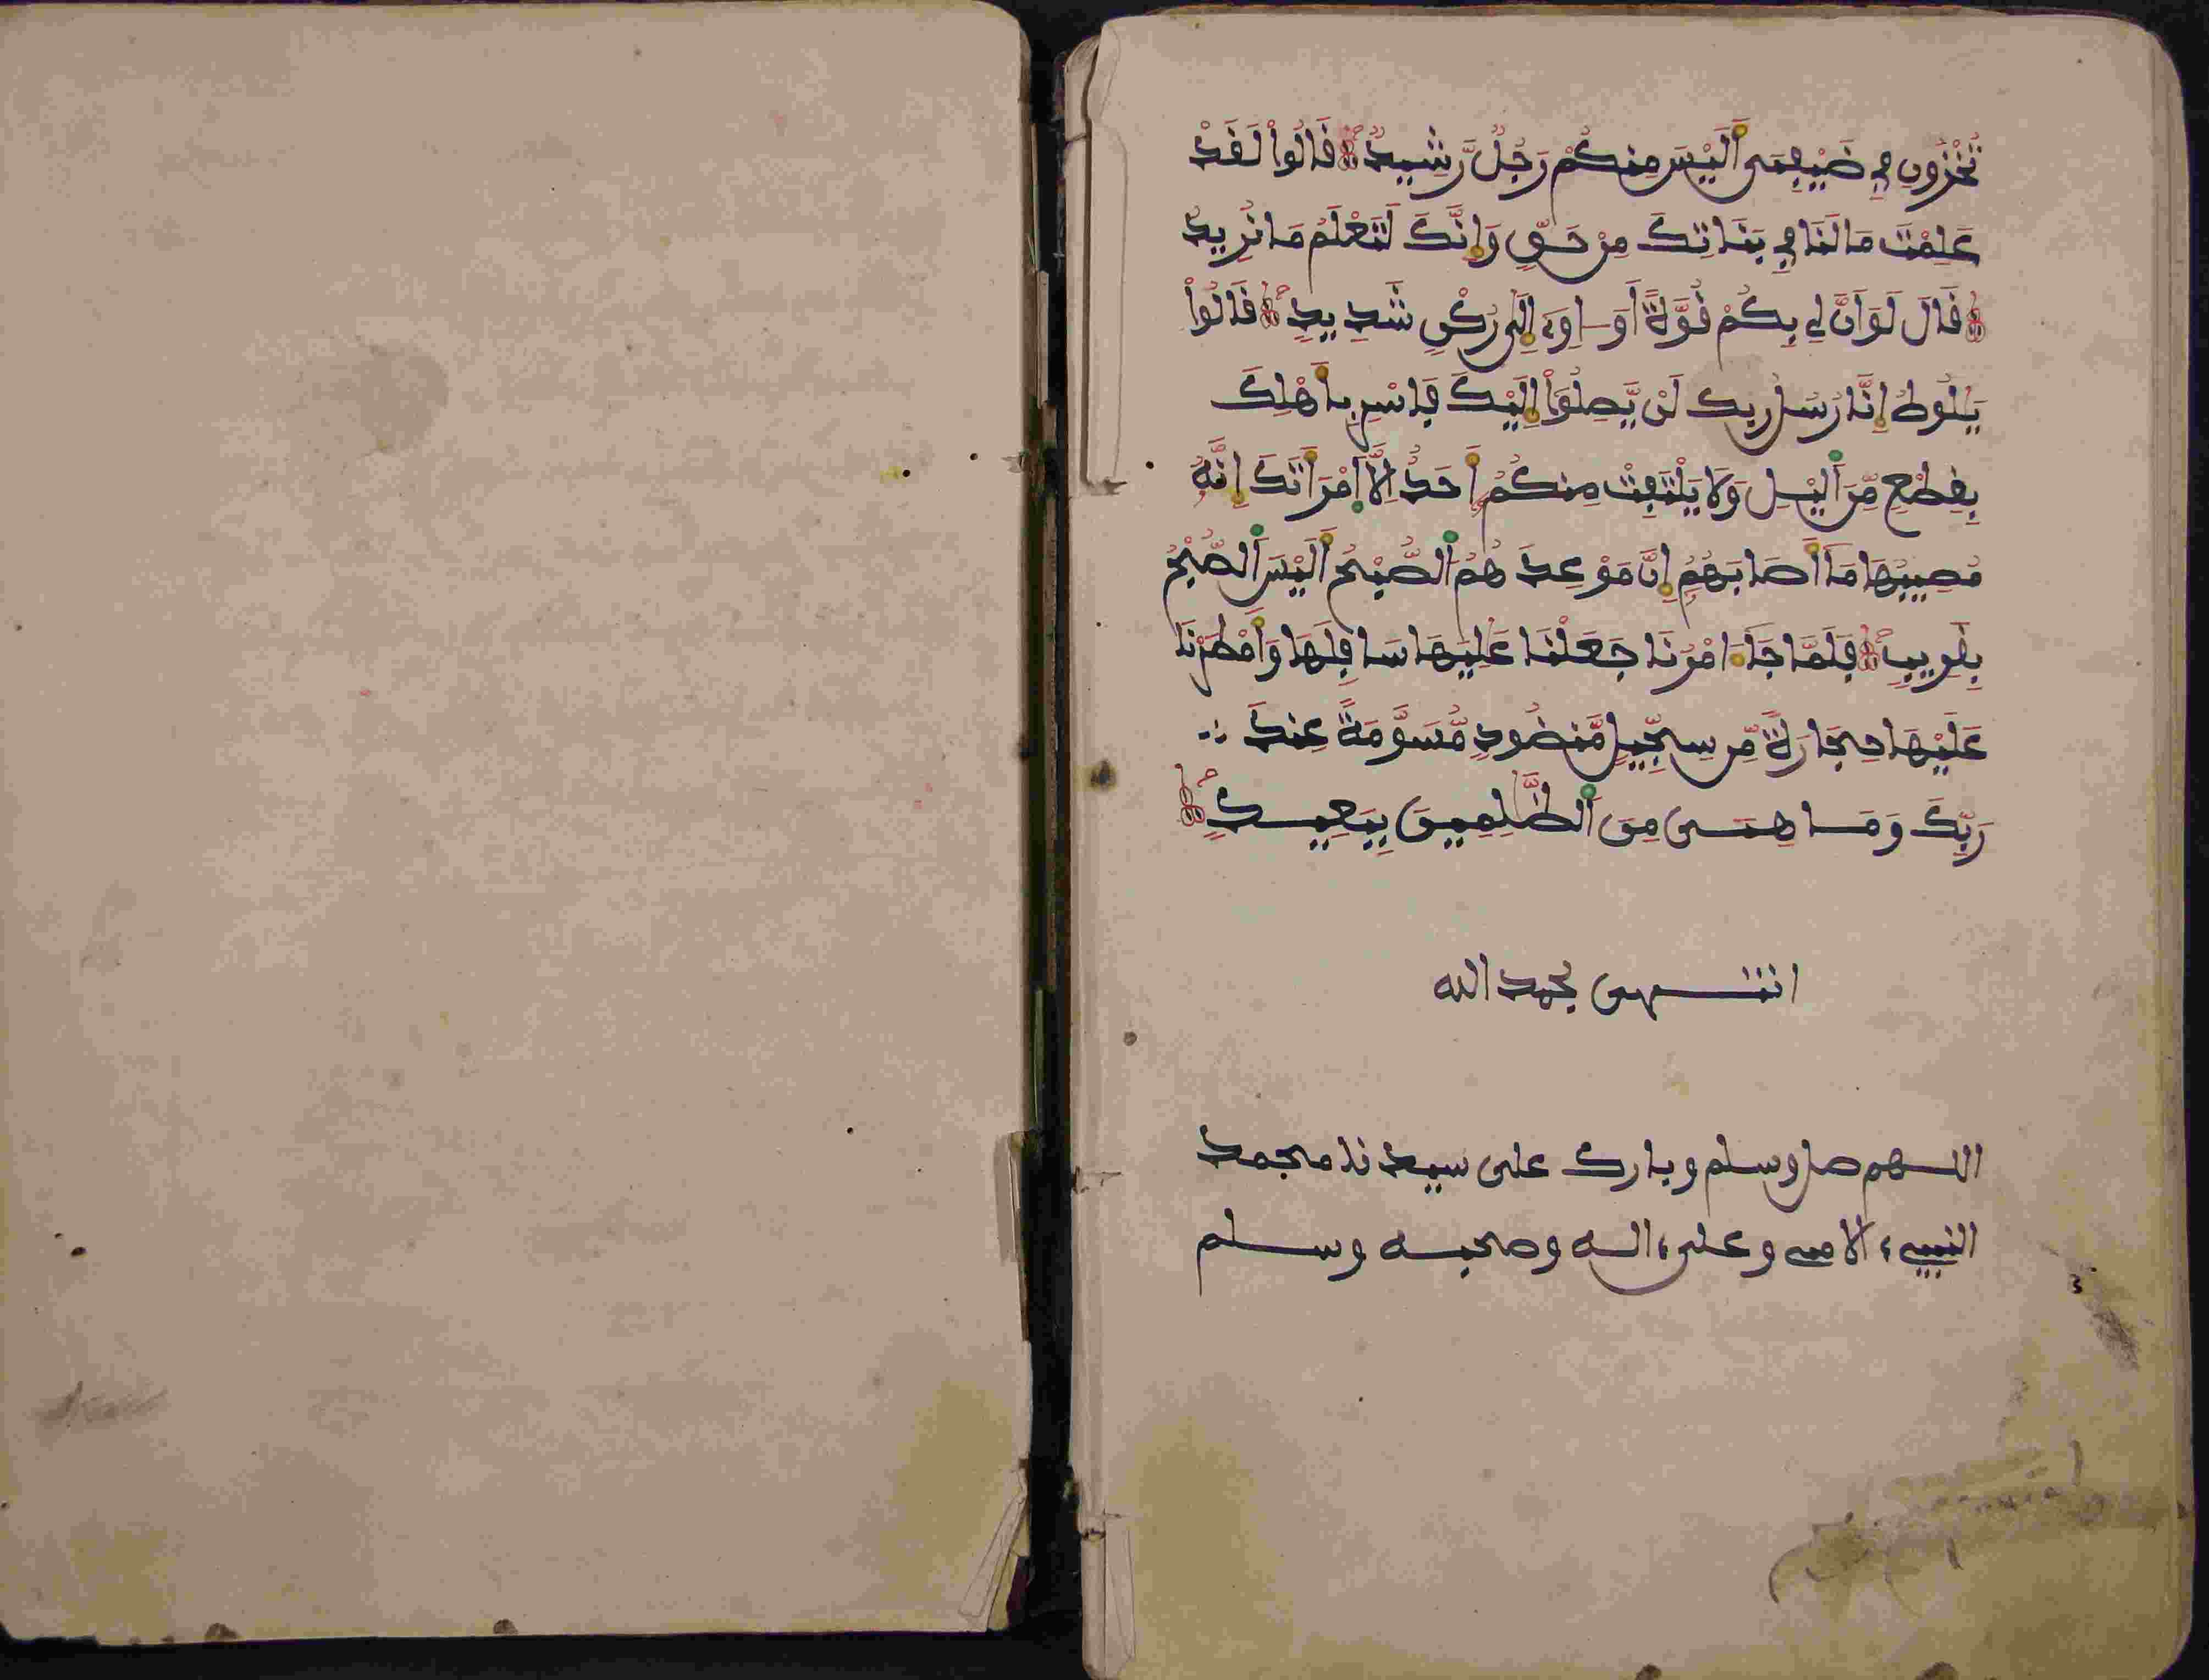 تُخْزُونِ فِے ضَيْفِىَ أَلَيْسَ مِنكُمْ رَجُلٌ رَّشِيدٌ قَالُواْ لَقَدْ
عَلِمْتَ مَا لَنَا فِے بَنَاتِكَ مِنْ حَقٍّ وَإِنَّكَ لَتَعْلَمُ مَا نُرِيدُ
قَالَ لَوَ اَنَّ لِے بِكُمْ قُوَّةً أَوَ اٰوِے إِلَىٰ رُكْنٍ شَدِيدٍ قَالُواْ
يَٰلُوطُ إِنَّا رُسُلُ رَبِّكَ لَنْ يَّصِلُوٓاْ إِلَيْكَ فَاسْرِ بِأَهْلِكَ
بِقِطْعٍ مِّنَ أَليْلِ وَلَا يَلْتَفِتْ مِنكُمُ أَحَدٌ إِلَّا اَمْرَأَتَكَ إِنَّهُ
مُصِيبُهَا مَآ أَصَابَهُمُ إِنَّ مَوْعِدَهُمُ الصُّبْحُ أَلَيْسَ اَلصُّبْحُ
بِقَرِيبٍ فَلَمَّا جَآءَ امْرُنَا جَعَلْنَا عَٰلِيَهَا سَافِلَهَا وَأَمْطَرْنَا
عَلَيْهَا حِجَارَةً مِّن سِجِّيلٍ مَّنضُودٍ مُّسَوَّمَةً عِندَ
رَبِّكَ وَمَا هِىَ مِنَ اَلظَّٰلِمِينَ بِبَعِيدٍ
انتهى بحمد الله
اللهم صل وسلم وبارك على سيدنا محمد
النبيء الامي وعلىءاله وصحبه وسلم